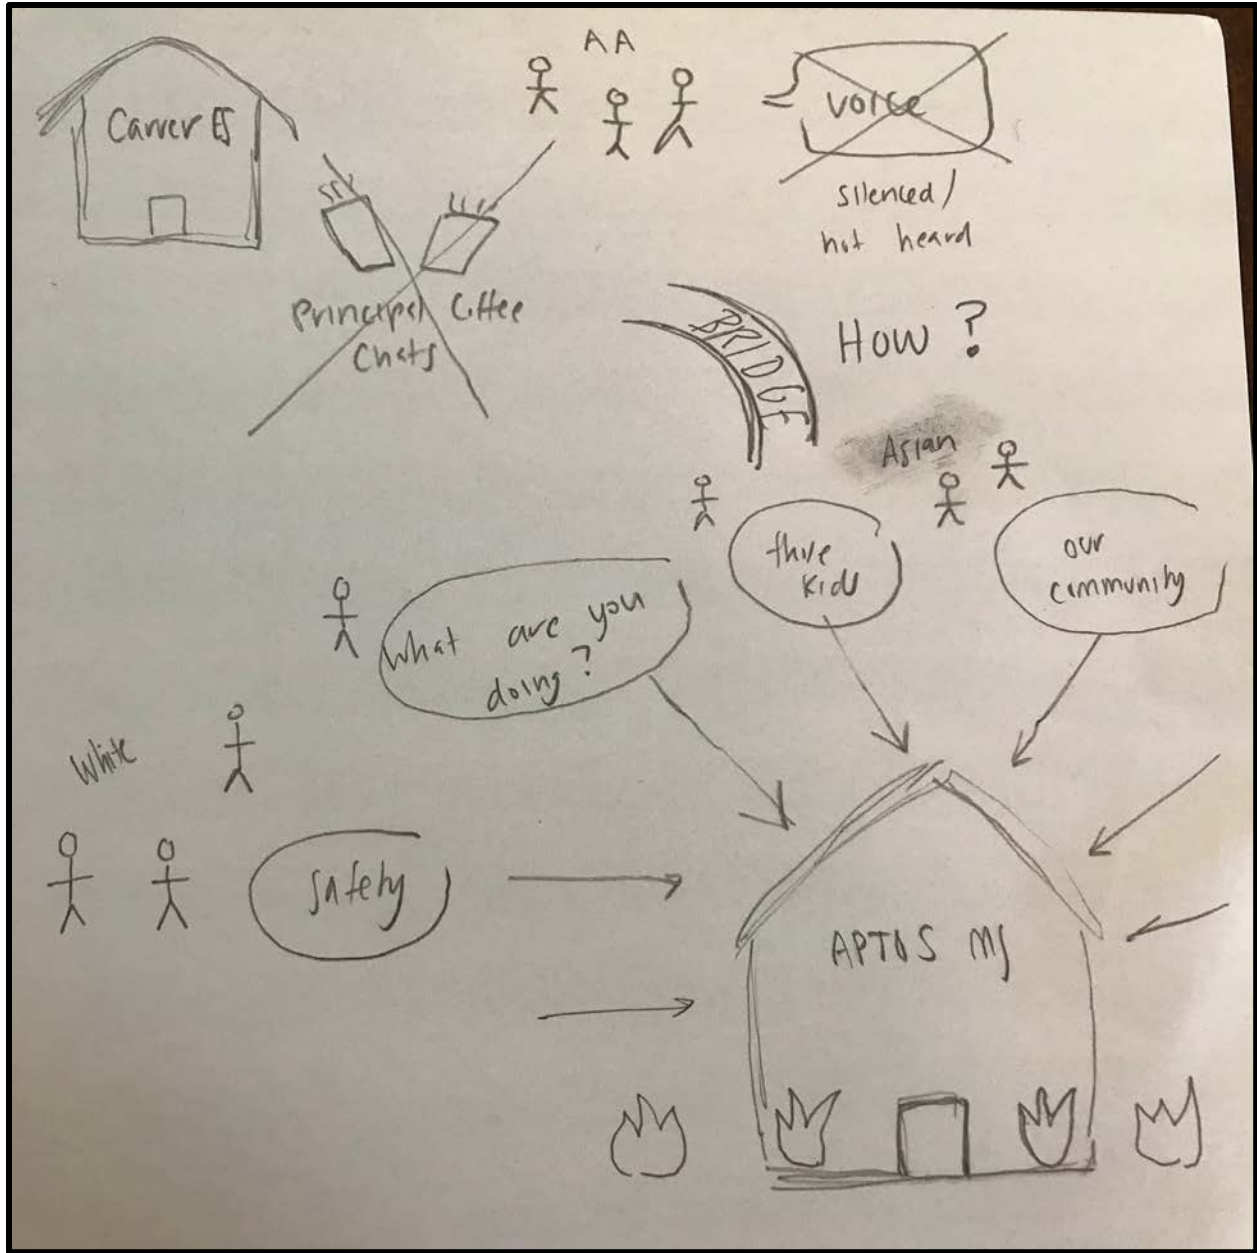 AA
Carver ES
voice
silenced/
not heard
Principal Coffee
Chats
BRIDGE
How?
Asian
those
kids
our
community
What are you
doing?
White
safety
APTOS MS